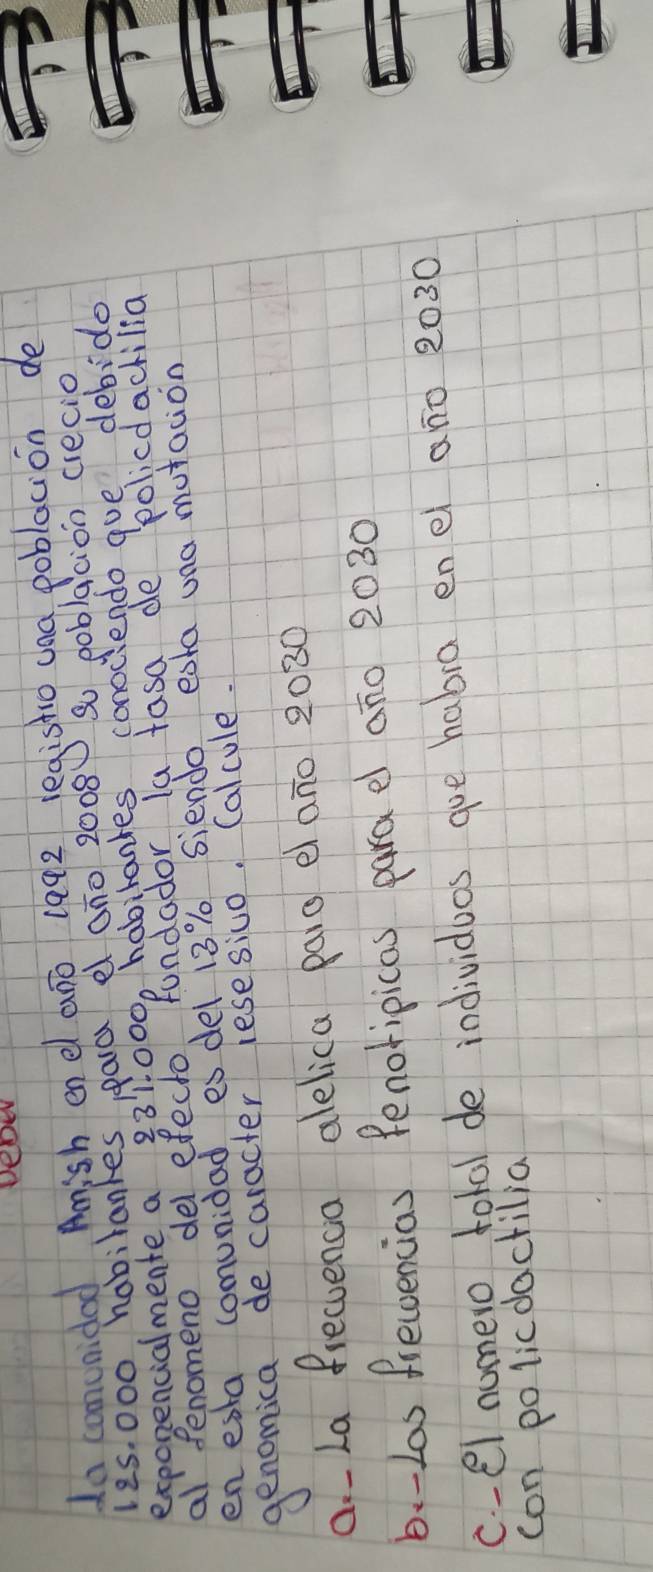 Deber
La comunidad Amish en el año 1992 registro una poblacion de
125.000 habitantes para el año 2008 su población crecio
exponencialmente a 231.000 habitantes conociendo que debido
al fenomeno del efecto fundador la tasa de policdactilia
en esta comunidad es del 13% siendo esta una mutación
genomica de caracter resesivo. Calcule.
a.- La frecuencia alelica para el año 2030
b.- Las frecuencias fenotipicas para el año 2030
c.- El numero total de individuos que habra en el año 2030
con policdactilia